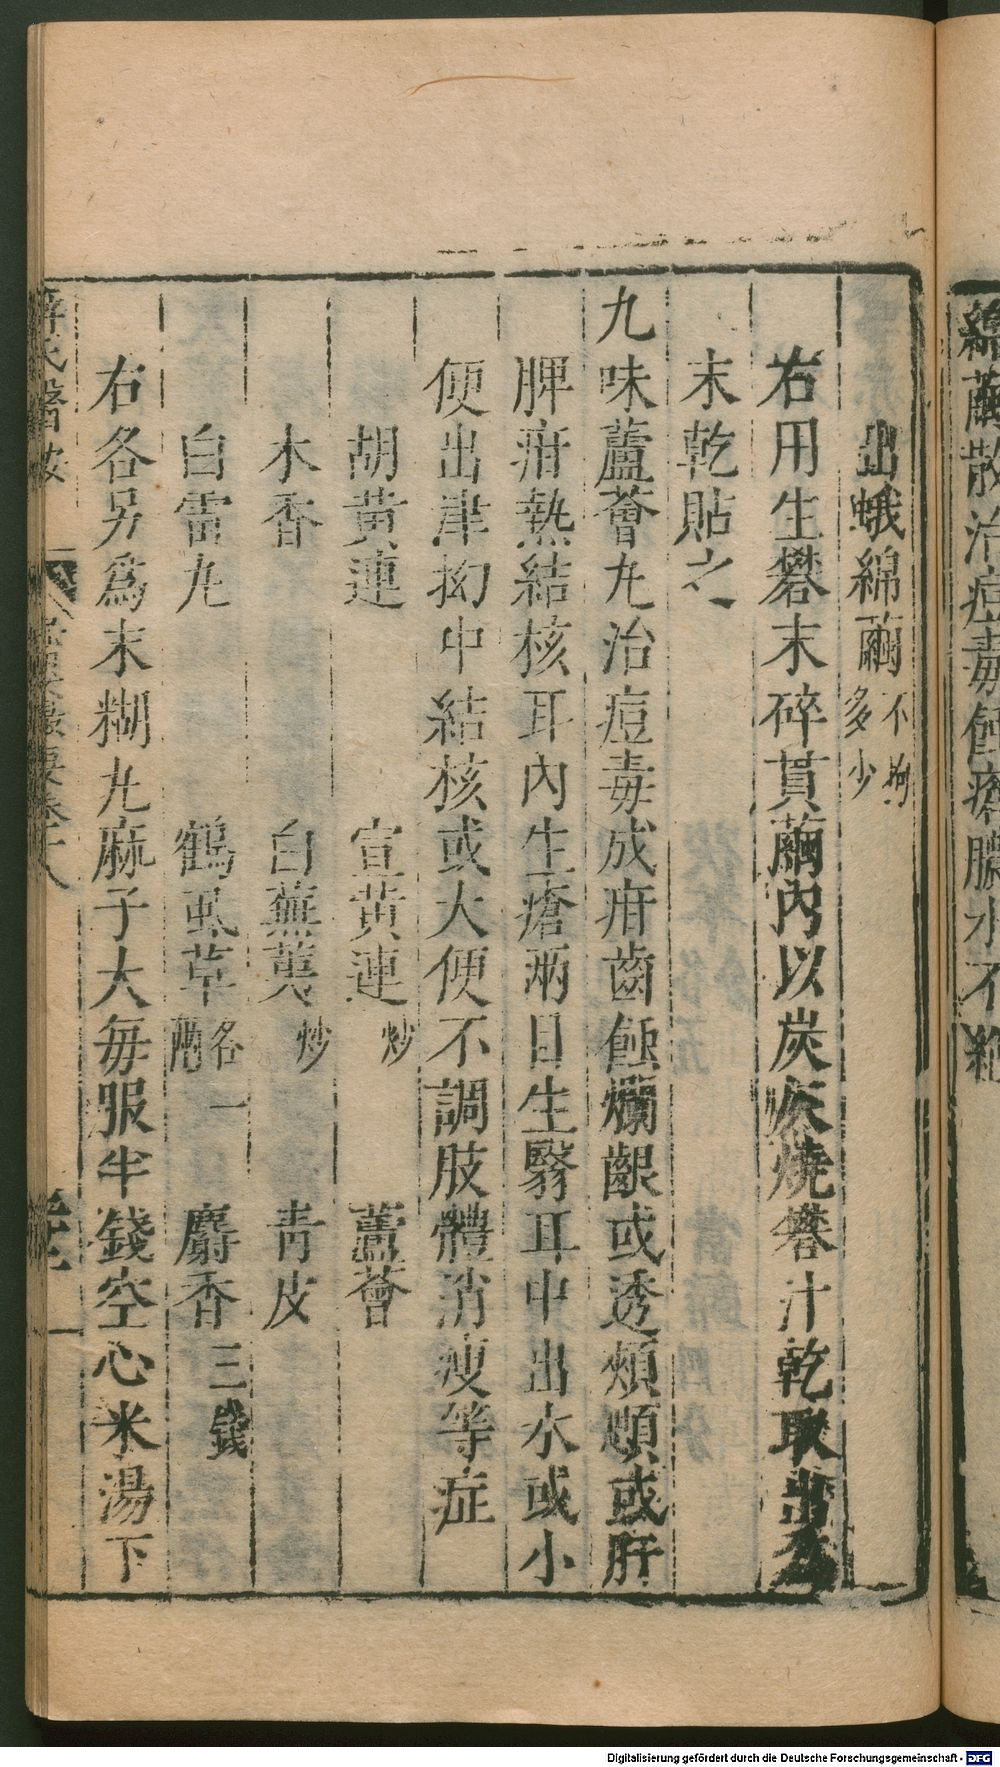 綿繭散治痘毒蝕瘡膿水不絕
出蛾綿繭不拘多少
右用生礬末碎貫繭內以炭灰燒礬汁乾取出為
末乾貼之
九味蘆薈丸治痘毒成疳齒蝕爛齦或透頰頷或肝
脾疳熱結核耳內生瘡兩目生翳耳中出水或小
便出津拗中結核或大便不調肢體消瘦等症
胡黃連 宣黃連炒 蘆薈
木香 白蕪荑炒 青皮
白雷丸 鶴虱草各一兩 麝香三錢
右各另爲末糊丸麻子大每服半錢空心米湯下
薛氏醫按
Digitalisierung gefördert durch die Deutsche Forschungsgemeinschaft - DFG